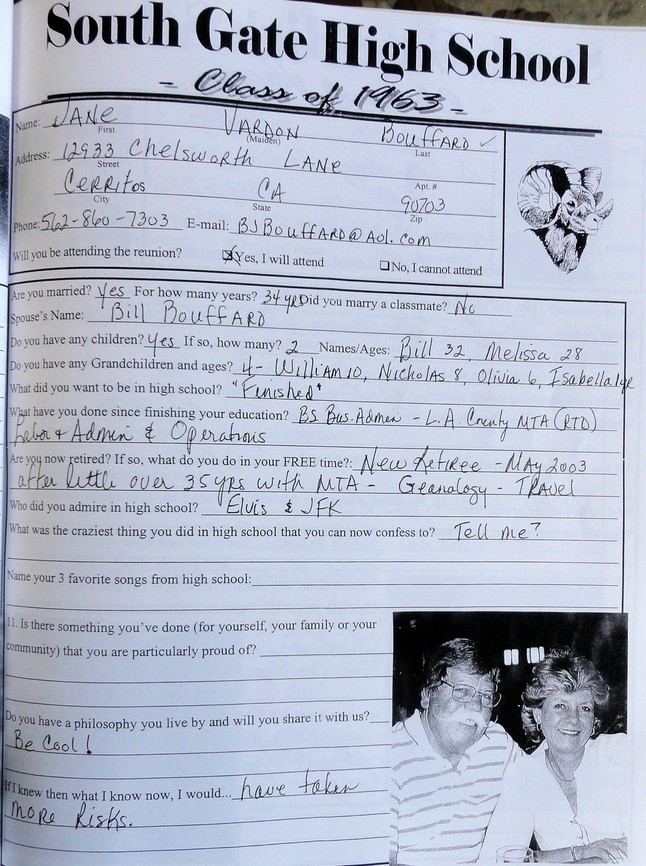 South Gate High School
- Class of 1963 -
Name: JANE VARDON BOUFFARD ✓
First (Maiden) Last
Address: 12933 Chelsworth LANE
Street Apt. #
Cerritos CA 90703
City State Zip
Phone: 562-860-7303 E-mail: BJBOUFFARD@AOL.com
Will you be attending the reunion? ☒Yes, I will attend ☐No, I cannot attend
Are you married? Yes For how many years? 34 yrs Did you marry a classmate? No
Spouse's Name: Bill BOUFFARD
Do you have any children? yes If so, how many? 2 Names/Ages: Bill 32, Melissa 28
Do you have any Grandchildren and ages? 4- William 10, Nicholas 8, Olivia 6, Isabella 1yr
What did you want to be in high school? "Finished"
What have you done since finishing your education? BS Bus. Admin - L.A. County MTA (RTD)
Labor & Admin & Operations
Are you now retired? If so, what do you do in your FREE time?: New Retiree - MAY 2003
after little over 35 yrs with MTA - Geanalogy - TRAvel
Who did you admire in high school? Elvis & JFK
What was the craziest thing you did in high school that you can now confess to? Tell me?
Name your 3 favorite songs from high school:
11. Is there something you've done (for yourself, your family or your
community) that you are particularly proud of?
Do you have a philosophy you live by and will you share it with us?
Be Cool!
If I knew then what I know now, I would... have taken
more Risks.